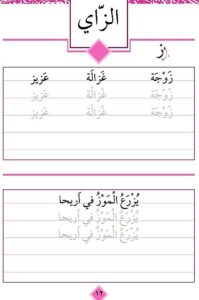 الزّاي
ز
زَوْجَة غَزالَة عَزيز
زَوْجَة غَزالَة عَزيز
زَوْجَة غَزالَة عَزيز
يُزْرَعُ الْمَوْزُ في أَريحا
يُزْرَعُ الْمَوْزُ في أَريحا
يُزْرَعُ الْمَوْزُ في أَريحا
١٣